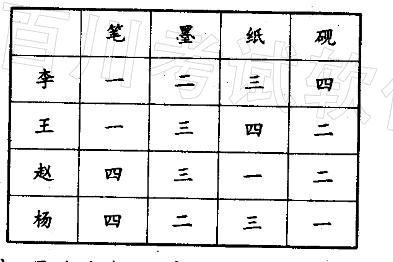 笔 墨 纸 砚
李 一 二 三 四
王 一 三 四 二
赵 四 三 一 二
杨 四 二 三 一
百川考试软件